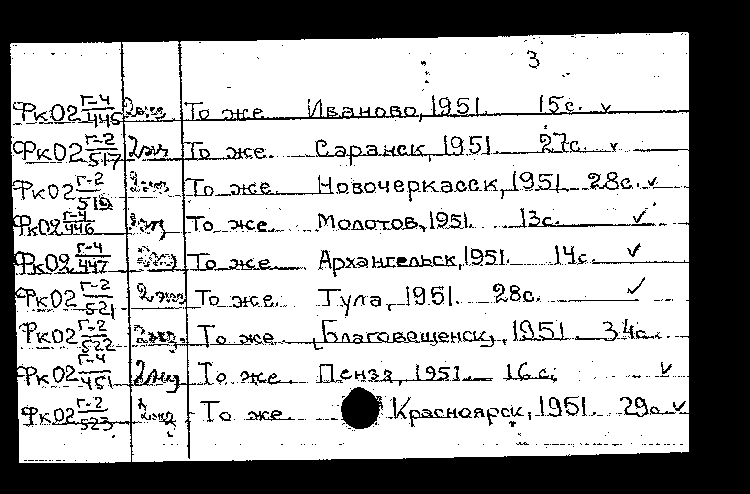 3
Фк02 Г-4/445 2экз То же Иваново, 1951. 15с. v
Фк02 Г-2/517 2экз То же. Саранск, 1951. 27с. v
Фк02 Г-2/519 2экз То же. Новочеркасск, 1951 28с. v
Фк02 Г-4/446 2экз То же. Молотов, 1951. 13с. v
Фк02 Г-4/447 2экз То же. Архангельск, 1951. 14с. v
Фк02 Г-2/521 2экз То же. Тула, 1951. 28с. v
Фк02 Г-2/522 2экз. То же. [Благовещенск], 1951. 34с.
Фк02 Г-4/451 2экз То же. Пенза, 1951. 16с. v
Фк02 Г-2/523. 2экз То же. Красноярск, 1951. 29с v